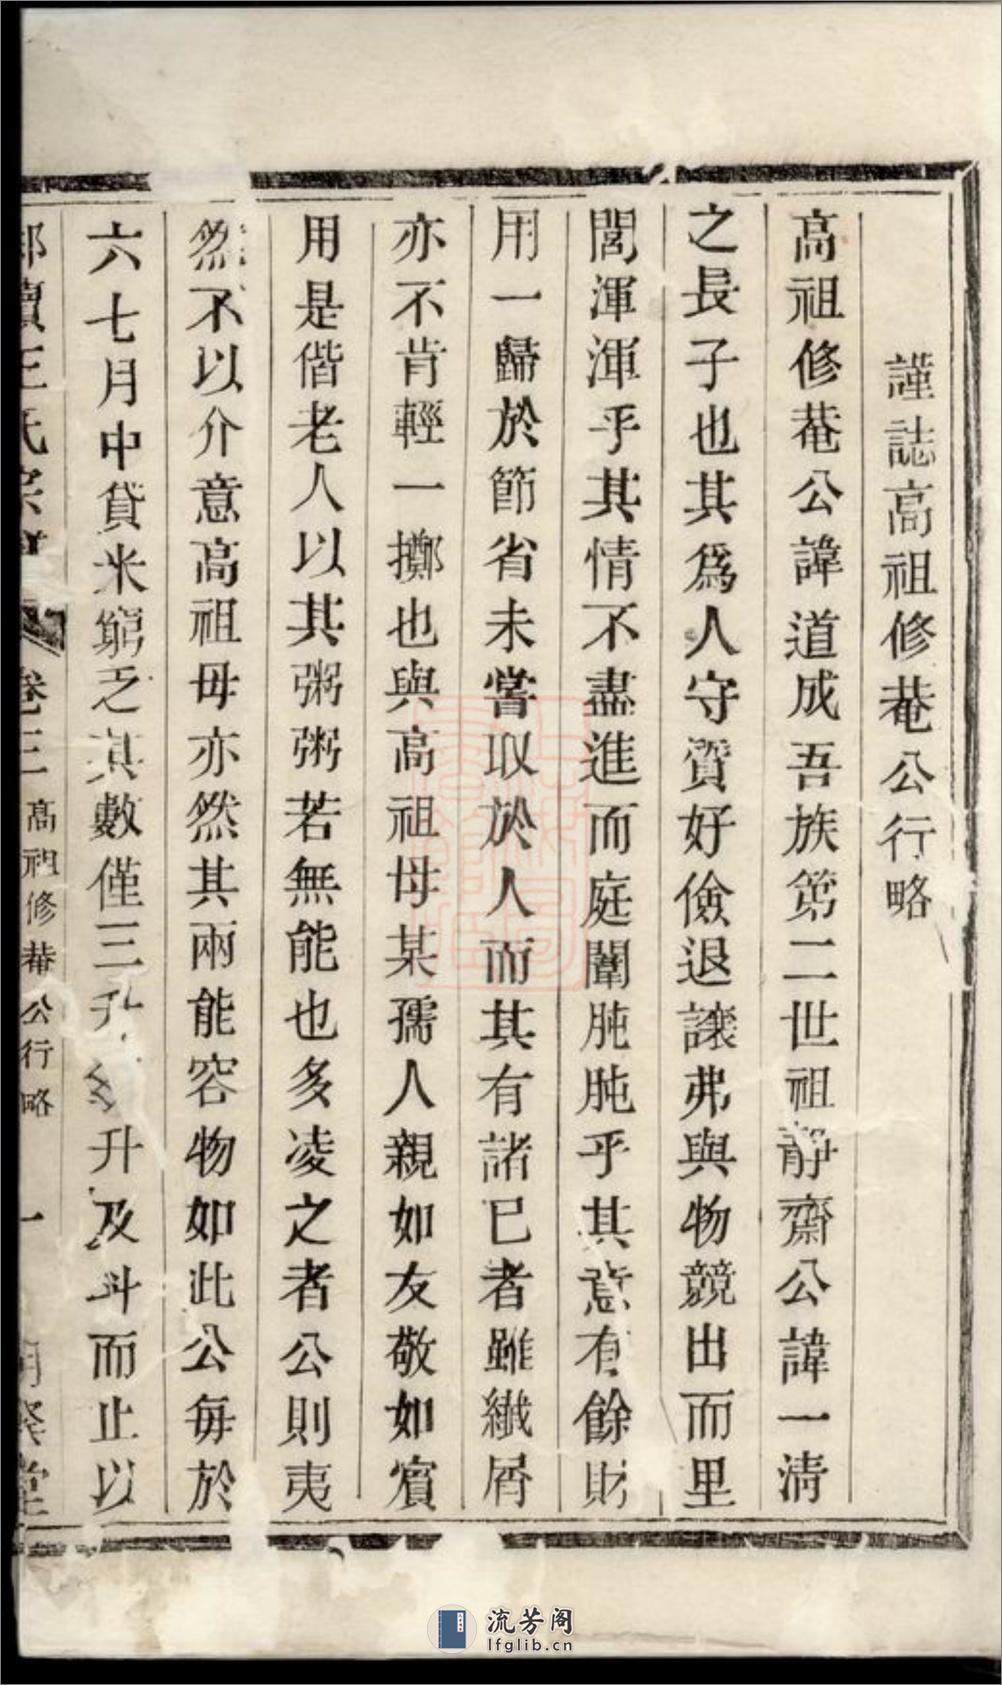 謹誌高祖修菴公行略
高祖修菴公諱道成吾族第二世祖靜齋公諱一清
之長子也其爲人守質好儉退讓弗與物競出而里
閭渾渾乎其情不盡進而庭闈肫肫乎其意有餘財
用一歸於節省未嘗取於人而其有諸已者雖纎屑
亦不肯輕一擲也與高祖母某孺人親如友敬如賓
用是偕老人以其粥粥若無能也多凌之者公則夷
然不以介意高祖母亦然其兩能容物如此公每於
六七月中貸米窮乏其數僅三升 升及斗而止以
王氏宗 卷三 高祖修菴公行略 一 堂
流芳阁
lfglib.cn